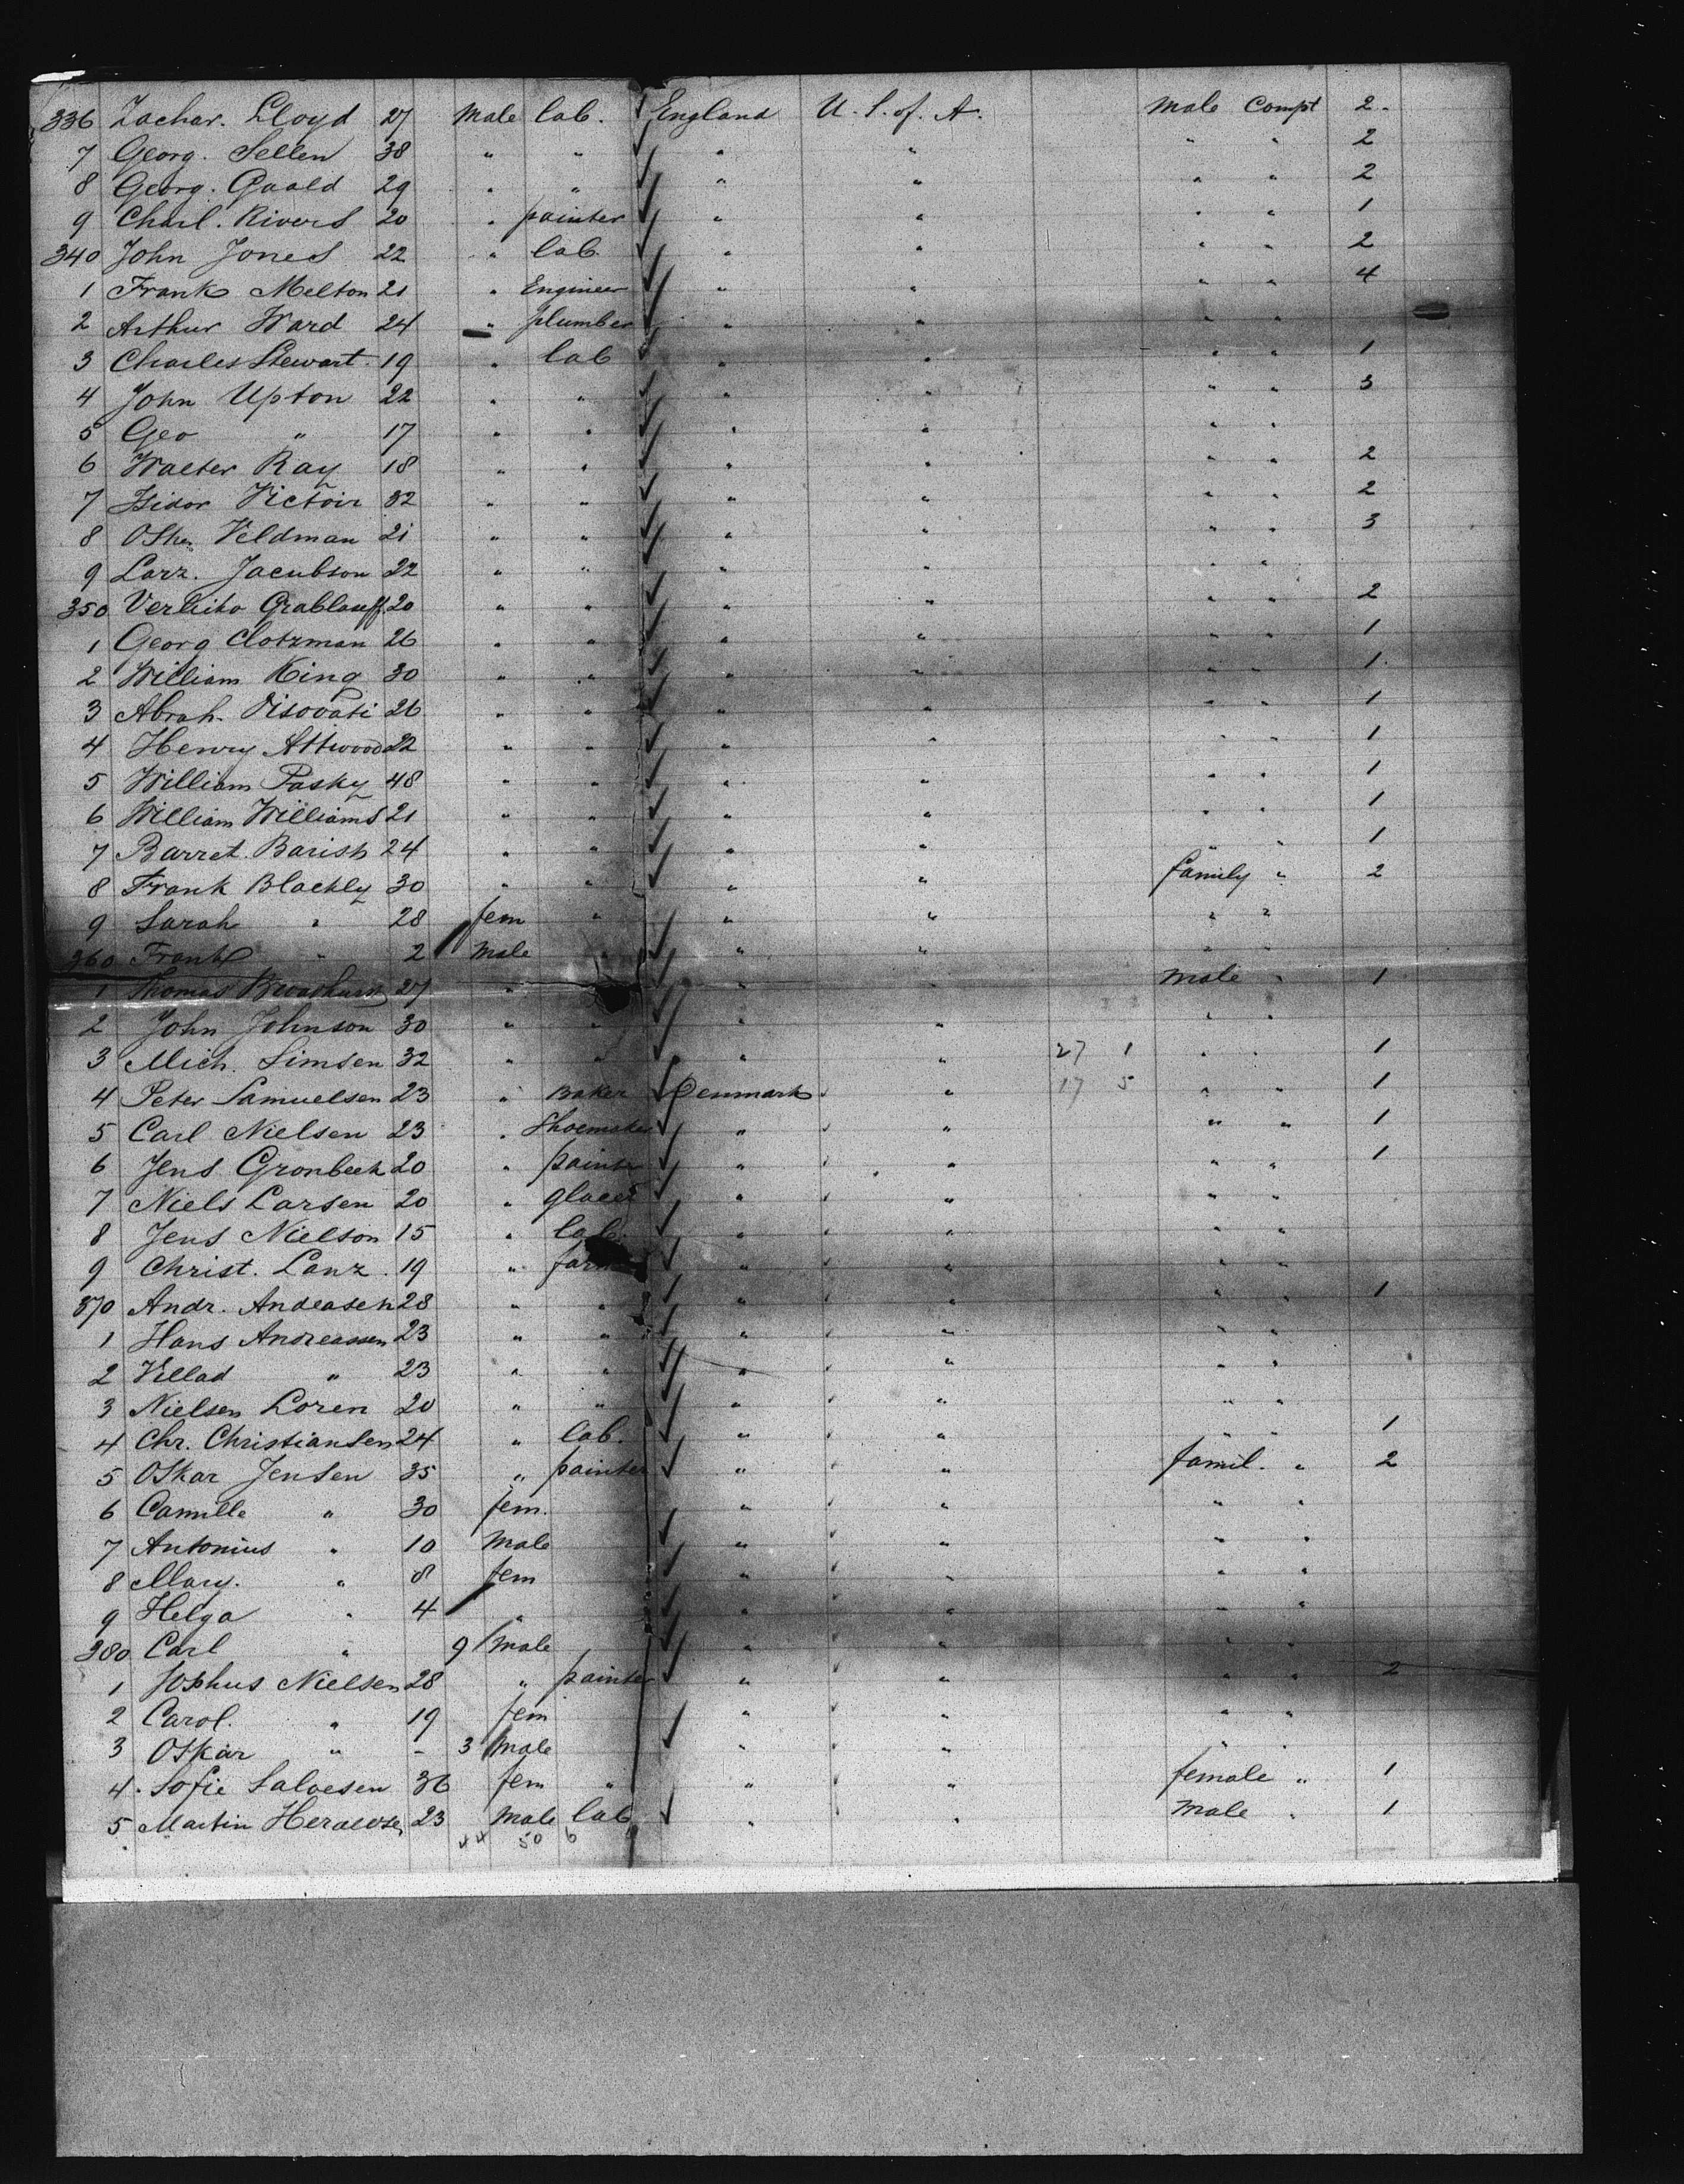 336 Zachar. Lloyd 27 Male lab. England U. S. of. A. male Compt 2.
7 Georg. Sellen 38 " " " " " " 2
8 Georg. Gaald 29 " " " " " " 2
9 Charl. Rivers 20 " painter " " " " 1
340 John Jones 22 " lab. " " " " 2
1 Frank Melton 21 " Engineer " " " " 4
2 Arthur Ward 24 " plumber " " " "
3 Charles Stewart 19 " lab " " " " 1
4 John Upton 22 " " " " " " 3
5 Geo " 17 " " " " " "
6 Walter Ray 18 " " " " " " 2
7 Isidor Victoir 32 " " " " " " 2
8 Veldman 21 " " " " " " 3
9 Larz. Jacubson 22 " " " " " "
350 20 " " " " " " 2
1 Georg Clotzman 26 " " " " " " 1
2 William King 30 " " " " " " 1.
3 Abrah. 26 " " " " " " 1
4 Henry Attwood 22 " " " " " " 1
5 William Pasky 48 " " " " " " 1
6 William Williams 21 " " " " " " 1
7 Barret. Barish 24 " " " " " " 1
8 Frank Blackly 30 " " " " family " 2
9 Sarah " 28 fem " " " " "
360 Frank " 2 Male " " " " "
1 Thomas 27 " " " " male " 1
2 John Johnson 30 " " " " " "
3 Mich. Simsen 32 " " " " 27 1 " " 1
4 Peter Samuelsen 23 " Baker Denmark " 17 5 " " 1
5 Carl Nielsen 23 " Shoemaker " " " " 1
6 Jens Gronbech 20 " painter " " " " 1
7 Niels Larsen 20 " " " " "
8 Jens Nielson 15 " lab. " " " "
9 Christ. Lanz. 19 " " " " "
370 Andr. Andeasen 28 " " " " " " 1
1 Hans Andreassen 23 " " " " " "
2 Villad " 23 " " " " " "
3 Nielsen Loren 20 " " " " " "
4 Chr. Christiansen 24 " lab. " " " " 1
5 Oskar Jensen 35 " painter " " famil. " 2
6 Camille " 30 fem. " " " "
7 Antonius " 10 Male " " " "
8 Mary. " 8 fem " " " "
9 Helga " 4 " " " " "
380 Carl " 9 male " " " "
1 Sophus Nielsen 28 " painter " " " " 2
2 Carol. " 19 fem " " " "
3 Oskar " - 3 male " " "
4. Sofie Salvesen 36 fem " " " female " 1
5 Martin 23 Male lab " " Male " 1
44 50 6